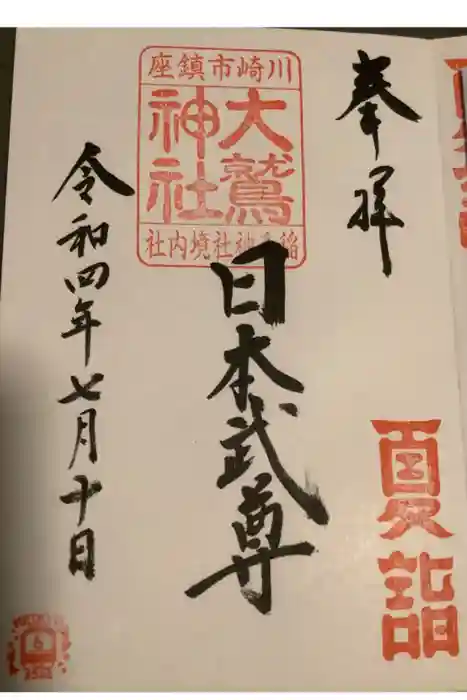 奉拝
夏詣
川崎市鎮座
大鷲
神社
稲毛神社境内社
日本武尊
令和四年七月十日